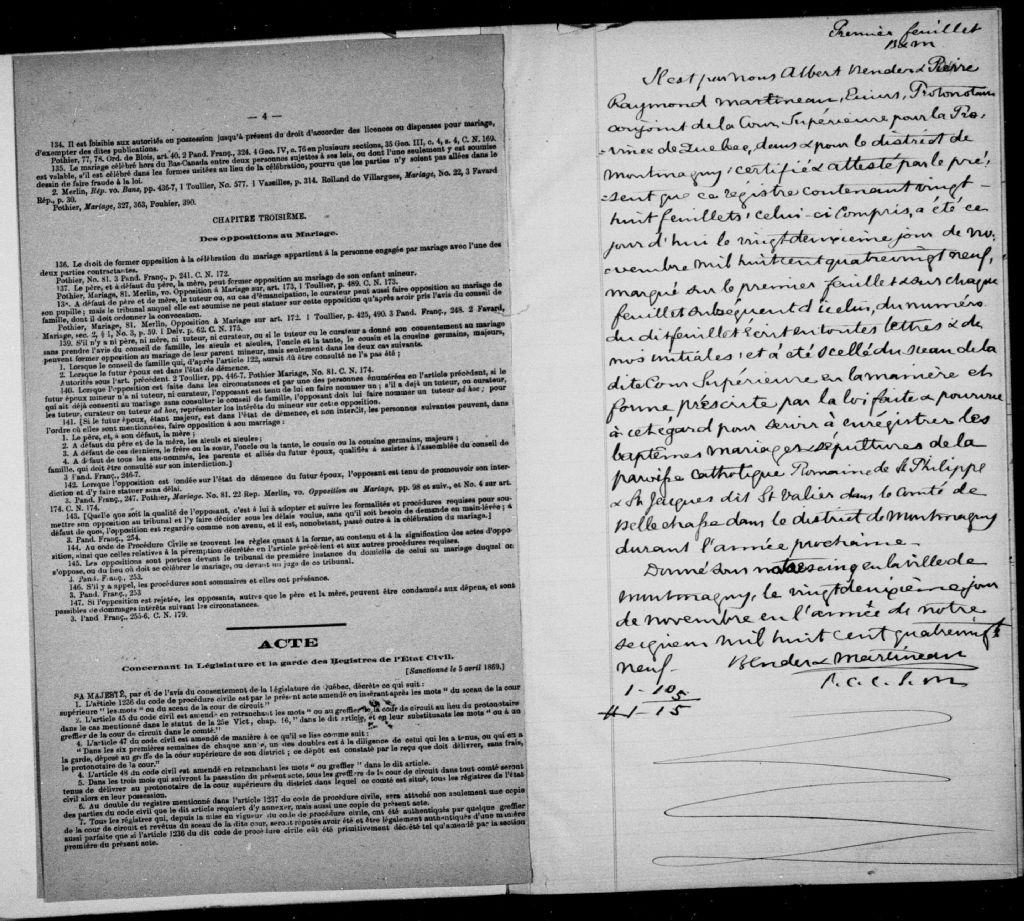 — 4 —
134. Il est loisible aux autorités en possession jusqu'à présent du droit d'accorder des licences ou dispenses pour mariage,
d'exempter des dites publications.
Pothier, 77, 78. Ord. de Blois, art. 40. 2 Pand. Franç., 324. 4 Geo. IV, c. 76 en plusieurs sections, 35 Geo. III, c. 4, s. 4, C. N. 169.
135. Le mariage célébré hors du Bas-Canada entre deux personnes sujettes à ses lois, ou dont l'une seulement y est soumise
est valable, s'il est célébré dans les formes usitées au lieu de la célébration, pourvu que les parties n'y soient pas allées dans le
dessin de faire fraude à la loi.
2. Merlin, Rép. vo. Bans, pp. 436-7, 1 Toullier, No. 577. 1 Vazeilles, p. 314. Rolland de Villargues, Mariage, No. 22, 3 Favard
Rép., p. 30.
Pothier, Mariage, 327, 363, Pouhier, 390.
CHAPITRE TROISIÈME.
Des oppositions au Mariage.
136. Le droit de former opposition à la célébration du mariage appartient à la personne engagée par mariage avec l'une des
deux parties contractantes.
Pothier, No. 81. 3 Pand. Franç., p. 241. C. N. 172.
137. Le père, et à défaut du père, la mère, peut former opposition au mariage de son enfant mineur.
Pothier, Mariage, 81. Merlin, vo. Opposition à Mariage sur, art. 173, 1 Toullier, p. 489. C. N. 173.
13*. A défaut de père et de mère, le tuteur ou, au cas d'émancipation, le curateur peut aussi faire opposition au mariage de
son pupille; mais le tribunal auquel elle est soumise ne peut statuer sur cette opposition qu'après avoir pris l'avis du conseil de
famille, dont il doit ordonner la convocation.
Pothier, Mariage, 81. Merlin, Opposition à Mariage sur art. 172. 1 Toullier, p. 425, 490. 3 Pand. Franç., 248. 2 Favard,
Mariage, sec. 2, § 1, No. 3, p. 59. 1 Delv. p. 62. C. N. 175.
139. S'il n'y a ni père, ni mère, ni tuteur, ni curateur, ou si le tuteur ou le curateur a donné son consentement au mariage
sans prendre l'avis du conseil de famille, les aïeuls et aïeules, l'oncle et la tante, le cousin et la cousine germains, majeurs,
peuvent former opposition au mariage de leur parent mineur, mais seulement dans les deux cas suivants.
1. Lorsque le conseil de famille qui, d'après l'article 122, aurait dû être consulté ne l'a pas été;
2. Lorsque le futur époux est dans l'état de démence.
Autorités sous l'art. précédent. 2 Toullier, pp. 446-7. Pothier Mariage, No. 81. C. N. 174.
140. Lorsque l'opposition est faite dans les circonstances et par une des personnes énumérées en l'article précédent, si le
futur époux mineur n'a ni tuteur, ni curateur, l'opposant est tenu de lui en faire nommer un; s'il a déjà un tuteur, ou curateur,
qui ait déjà consenti au mariage sans consulter le conseil de famille, l'opposant doit lui faire nommer un tuteur ad hoc; pour
les tuteur, curateur ou tuteur ad hoc, représenter les intérêts du mineur sur cette opposition.
141. [Si le futur époux, étant majeur, est dans l'état de démence, et non interdit, les personnes suivantes peuvent, dans
l'ordre où elles sont mentionnées, faire opposition à son marriage:
1. Le père, et, à son défaut, la mère;
2. A défaut du père et de la mère, les aïeuls et aïeules;
3. A défaut de ces derniers, le frère ou la sœur, l'oncle ou la tante, le cousin ou la cousine germains, majeurs;
4. A défaut de tous les sus-nommés, les parents et alliés du futur époux, qualifiés à assister à l'assemblée du conseil de
famille, qui doit être consulté sur son interdiction.]
3 Pand. Franç., 246-7.
142. Lorsque l'opposition est fondée sur l'état de démence du futur époux, l'opposant est tenu de promouvoir son inter-
diction et d'y faire statuer sans délai.
3. Pand. Franç., 247. Pothier, Mariage. No. 81. 22 Rep. Merlin, vo. Opposition au Mariage, pp. 98 et suiv., et No. 4 sur art.
174. C. N. 174.
143. [Quelle que soit la qualité de l'opposant, c'est à lui à adopter et suivre les formalités et procédures requises pour sou-
mettre son opposition au tribunal et l'y faire décider sous les délais voulus, sans qu'il soit besoin de demande en main-levée; à
défaut de quoi, l'opposition est regardée comme non avenu, et il est, nonobstant, passé outre à la célébration du mariage.]
3. Pand. Franç., 254.
144. Au code de Procédure Civile se trouvent les règles quant à la forme, au contenu et à la signification des actes d'oppo-
sition, ainsi que celles relatives à la péremption décrétée en l'article précédent et aux autres procédures requises.
145. Les oppositions sont portées devant le tribunal de première instance du domicile de celui au mariage duquel on
s'oppose, ou du lieu où doit se célébrer le mariage, ou devant un juge de ce tribunal.
3. Pand. Franç., 253.
146. S'il y a appel, les procédures sont sommaires et elles ont préséance.
3. Pand. Franç., 253
147. Si l'opposition est rejetée, les opposants, autres que le père et la mère, peuvent être condamnés aux dépens, et sont
passibles de dommages intérêts suivant les circonstances.
3. Pand Franç., 255-6. C. N. 179.
ACTE
Concernant la Législature et la garde des Registres de l'Etat Civil.
[Sanctionné le 5 avril 1869.]
SA MAJESTÉ, par et de l'avis du consentement de la législature de Québec, décrète ce qui suit:
1. L'article 1236 du code de procédure civile est par le présent acte amendé en insérant après les mots "du sceau de la cour
supérieure" les mots "ou du sceau de la cour de circuit"
2. L'article 45 du code civil est amendé en retranchant les mots "ou au greffier de la cour de circuit au lieu du protonotaire
dans le cas mentionné dans le statut de la 25e Vict., chap. 16," dans le dit article, et en leur substituants les mots "ou à un
greffier de la cour de circuit dans le comté."
4. L'article 47 du code civil est amendé de manière à ce qu'il se lise comme suit:
"Dans les six premières semaines de chaque année, un des doubles est à la diligence de celui qui les a tenus, ou qui en a
la garde, déposé au greffe de la cour supérieure de son district; ce dépôt est constaté par le reçu que doit délivrer, sans frais,
le protonotaire de la cour."
4. L'article 48 du code civil est amendé en retranchant les mots "ou greffier" dans le dit article.
5. Dans les trois mois qui suivront la passation du présent acte, tous les greffiers de la cour de circuit dans tout comté seront
tenus de délivrer au protonotaire de la cour supérieure du district dans lequel ce comté est situé, tous les régistres de l'état
civil alors en leur possession.
6. Au double du registre mentionné dans l'article 1237 du code de procédure civile, sera attaché non seulement une copie
des parties du code civil que le dit article requiert d'y annexer, mais aussi une copie du présent acte.
7. Tous les régistres qui, depuis la mise en vigueur du code de procédure civile, ont été authentiqués par quelque greffier
de la cour de circuit et revêtus du sceau de la dite cour, seront réputés avoir été et être légalement authentiqués d'une manière
aussi parfaite que si l'article 1236 du dit code de procédure civile eût été primitivement décrété tel qu'amendé par la section
première du présent acte.
Premier feuillet
B & M
Il est par nous Albert Bender & Pierre
Raymond Martineau, Ecuiers, Protonotaire
conjoint de la Cour Supérieure pour la Pro-
vince de Quebec, dans & pour le district de
Montmagny, certifié & attesté par le pré-
sent que ce régistre contenant vingt-
huit feuillets, celui-ci compris, a été ce
jour d'hui le vingt deuxième jour de no-
vembre mil huit cent quatre vingt neuf,
marqué sur le premier feuillet & sur chaque
feuillet subséquent d'icelui, du numéro
du dit feuillet écrit en toutes lettres & de
nos initiales, et a été scellé du sceau de la
dite Cour Supérieure en la manière et
forme préscrite par la loi faite & pourvue
à cet égard pour servir à enrégistrer les
baptêmes mariages & sépultures de la
paroisse Catholique Romaine de St Philippe
& St Jacques dit St Valier dans le Comté de
Bellechasse dans le district de Montmagny
durant l'année prochaine.
Donné sous notre seing en la ville de
Montmagny, le vingt deuxième jour
de novembre en l'année de notre
seigneur mil huit cent quatre vingt
neuf.
Bender & Martineau
P. C. S. M
1-10
5
1-15